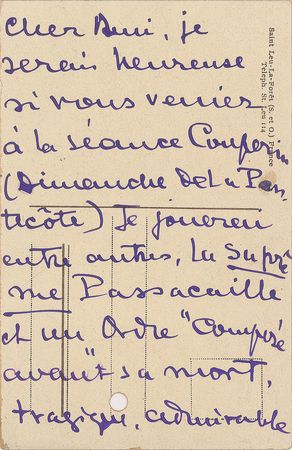 Cher Ami, je
serais heureuse
si vous veniez
à la séance Couperin
(Dimanche de la Pen
tecôte) Je jouerai
entre autres, la Suprê
me Passacaille
et un Ordre "Composé
avant" sa mort,
tragique, admirable
Saint Leu-La-Forêt (S. et O.) France
Téléph. St. Leu 114